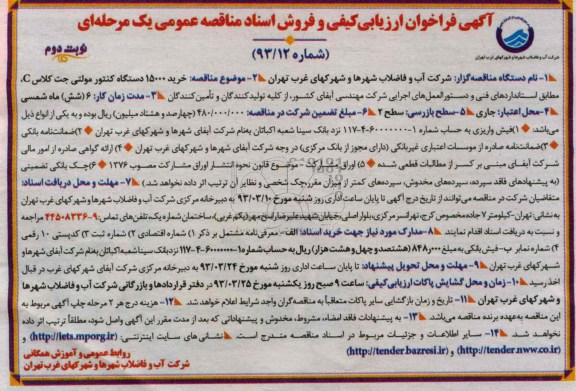 آگهی فراخوان ارزیابی کیفی و فروش اسناد مناقصه عمومی یک مرحله‌ای
(شماره ۹۳/۱۲)
نوبت دوم
شرکت آب و فاضلاب شهرها و شهرکهای غرب تهران
۱-نام دستگاه مناقصه‌گزار: شرکت آب و فاضلاب شهرها و شهرکهای غرب تهران ۲-موضوع مناقصه: خرید ۱۵۰۰۰ دستگاه کنتور مولتی جت کلاس C،
مطابق استانداردهای فنی و دستورالعمل‌های اجرایی شرکت مهندسی آبفای کشور، از کلیه تولیدکنندگان و تأمین‌کنندگان ۳-مدت زمان کار: ۶ (شش) ماه شمسی
۴-محل اعتبار: جاری ۵-سطح بازرسی: سطح ۲ ۶-مبلغ تضمین شرکت در مناقصه: ۴۸۰/۰۰۰/۰۰۰ (چهارصد و هشتاد میلیون) ریال بوده و به یکی از انواع ذیل
می‌باشد: ۱)فیش واریزی به حساب شماره ۱-۶۰۰۰۰۰۰-۴-۱۱۷ نزد بانک سینا شعبه اکباتان به‌نام شرکت آبفای شهرها و شهرکهای غرب تهران ۲)ضمانت‌نامه بانکی
۳)ضمانت‌نامه صادره از موسسات اعتباری غیربانکی (دارای مجوز از بانک مرکزی) در وجه شرکت آبفای شهرها و شهرکهای غرب تهران ۴)ارائه گواهی صادره از امور مالی
شرکت آبفای مبنی بر کسر از مطالبات قطعی شده ۵)اوراق مشارکت موضوع قانون نحوه انتشار اوراق مشارکت مصوب ۱۳۷۶ ۶)چک بانکی تضمینی
(به پیشنهادهای فاقد سپرده، سپرده‌های مخدوش، سپرده‌های کمتر از میزان مقرر، چک شخصی و نظایر آن ترتیب اثر داده نخواهد شد.) ۷-مهلت و محل دریافت اسناد:
متقاضیان شرکت در مناقصه می‌توانند از تاریخ درج آگهی تا پایان ساعت اداری روز شنبه مورخ ۹۳/۰۳/۱۰ به دبیرخانه مرکزی شرکت آب و فاضلاب شهرها و شهرکهای غرب تهران
به نشانی: تهران-کیلومتر ۷ جاده مخصوص کرج-تهرانسر مرکزی، بلوار اصلی، خیابان شهید علیرضا اسخ‌مهر (یکم غربی)، ساختمان شماره یک، تلفن‌های تماس: ۹-۴۴۵۰۸۳۳۶ مراجعه
و نسبت به دریافت اسناد اقدام نمایند ۸-مدارک مورد نیاز جهت خرید اسناد: الف- معرفی‌نامه مشتمل بر ذکر ۱) شماره اقتصادی ۲) شماره ثبت ۳) کدپستی ۱۰ رقمی
۴) شماره نمابر ب- فیش بانکی به مبلغ ۸۴۸/۰۰۰ (هشتصد و چهل و هشت هزار) ریال به حساب شماره ۱-۶۰۰۰۰۰۰-۴-۱۱۷ نزد بانک سینا شعبه اکباتان به‌نام شرکت آبفای شهرها و
شهرکهای غرب تهران ۹-مهلت و محل تحویل پیشنهاد: تا پایان ساعت اداری روز شنبه مورخ ۹۳/۰۳/۲۴ به دبیرخانه مرکزی شرکت آبفای شهرکهای غرب در قبال
اخذ رسید ۱۰-زمان و محل گشایش پاکات ارزیابی کیفی: ساعت ۹ صبح روز یکشنبه مورخ ۹۳/۰۳/۲۵ در دفتر قراردادها و بازرگانی شرکت آب و فاضلاب شهرها
و شهرکهای غرب تهران ۱۱- تاریخ و زمان بازگشایی سایر پاکات متعاقباً به مناقصه‌گران واجد شرایط اعلام خواهد شد. ۱۲- هزینه درج هر ۲ مرحله چاپ آگهی مربوط به
این مناقصه به‌عهده برنده مناقصه می‌باشد ۱۳- به پیشنهادات فاقد امضاء، مشروط، مخدوش و پیشنهاداتی که بعد از مدت مقرر این آگهی واصل شود، مطلقاً ترتیب اثر داده
نخواهد شد ۱۴- سایر اطلاعات و جزئیات مربوط در اسناد مناقصه مندرج است. نشانی های سایت اینترنتی: (http://iets.mporg.ir) و
(http://tender.nww.co.ir) و (http://tender.bazresi.ir)
روابط عمومی و آموزش همگانی
شرکت آب و فاضلاب شهرها و شهرکهای غرب تهران